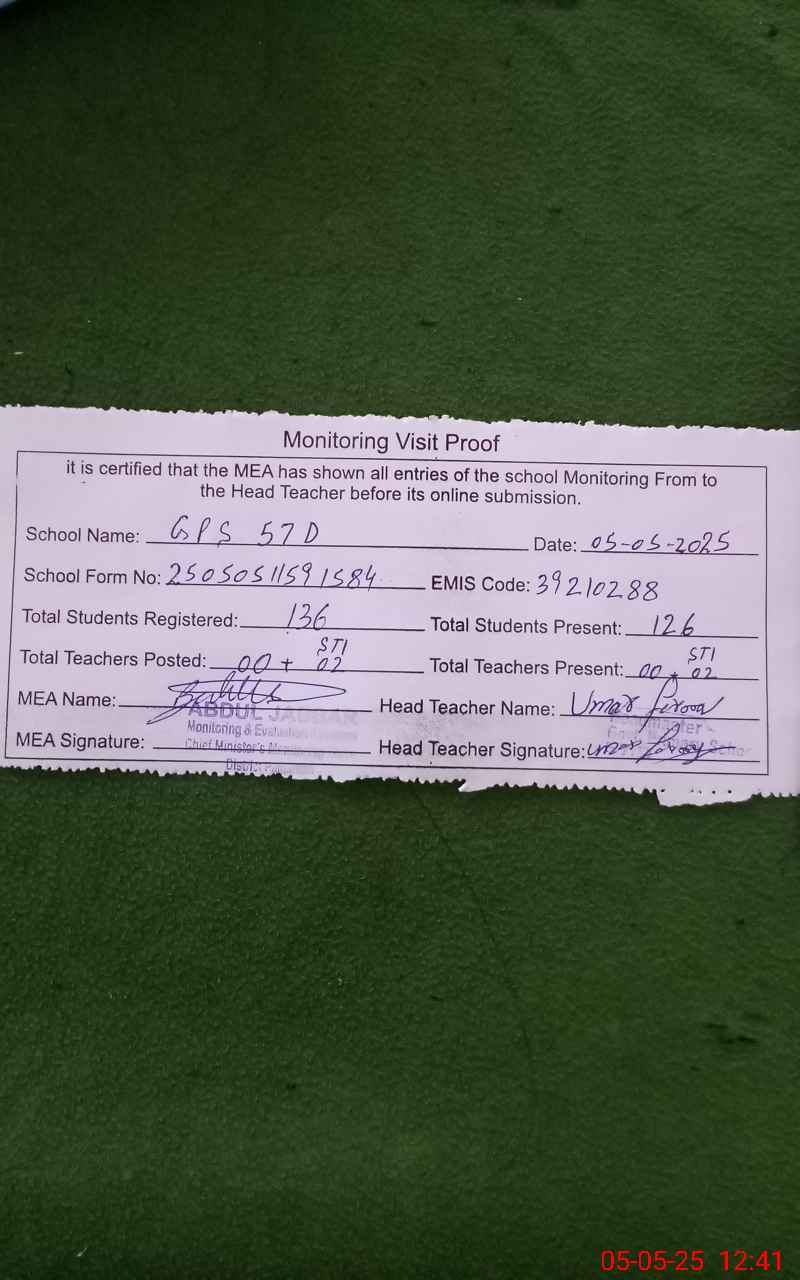 Monitoring Visit Proof
it is certified that the MEA has shown all entries of the school Monitoring From to
the Head Teacher before its online submission.
School Name: GPS 57 D Date: 05-05-2025
School Form No: 25050511591584 EMIS Code: 39210288
Total Students Registered: 136 Total Students Present: 126
STI STI
Total Teachers Posted: 00 + 02 Total Teachers Present: 00 + 02
MEA Name: Head Teacher Name: Umar
ABDUL JABBAR
Monitoring & Evaluation
MEA Signature: Head Teacher Signature: Umar
Chief Minister's Monitoring
District
05-05-25 12:41